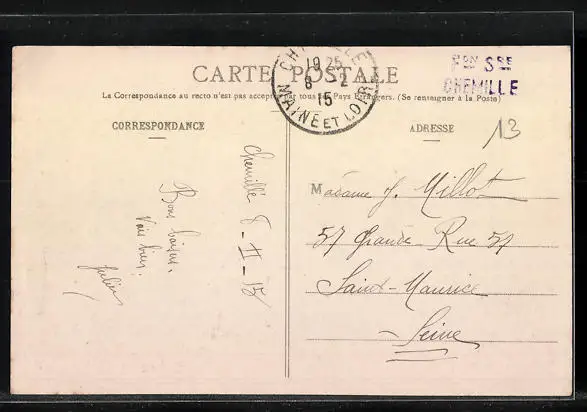 CARTE POSTALE
La Correspondance au recto n'est pas acceptée par tous les Pays Étrangers. (Se renseigner à la Poste)
CORRESPONDANCE
ADRESSE
CHEMILLE
19 25
8 - 2
15
MAINE ET LOIRE
Son SRE
CHEMILLE
13
Chemillé 8-II-15
Bons baisers.
Vais bien.
Julien
Madame J. Millot
57 Grande Rue 57
Saint-Maurice
Seine